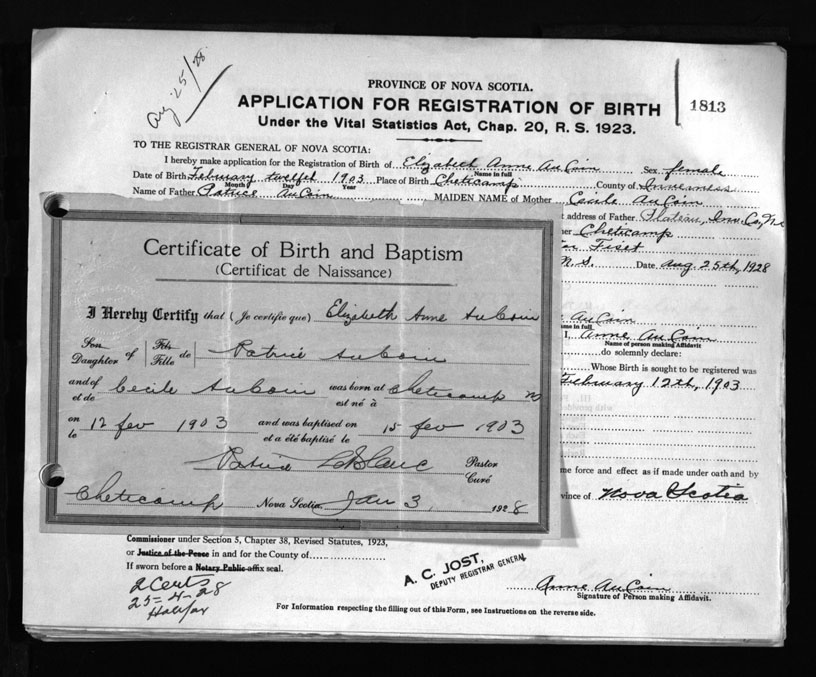 Aug 25/28
PROVINCE OF NOVA SCOTIA.
APPLICATION FOR REGISTRATION OF BIRTH
1813
Under the Vital Statistics Act, Chap. 20, R. S. 1923.
TO THE REGISTRAR GENERAL OF NOVA SCOTIA:
I hereby make application for the Registration of Birth of Elizabeth Anne AuCoin Sex female
Name in full
Date of Birth February twelfth 1903 Place of Birth Cheticamp County of Inverness
Month Day Year
Name of Father Patrice AuCoin MAIDEN NAME of Mother Cecile AuCoin
address of Father Plateau, Inv. Co,
Cheticamp
Fiset
N.S. Date Aug. 25th, 1928
Certificate of Birth and Baptism
(Certificat de Naissance)
I Hereby Certify that (Je certifie que) Elizabeth Anne AuCoin
Son
Daughter of Fils
Fille de Patrice AuCoin
and of
et de Cecile AuCoin was born at
est né à Cheticamp
on
le 12 fev 1903 and was baptised on
et a été baptisé le 15 fev 1903
Patrice LeBlanc Pastor
Curé
Cheticamp Nova Scotia, Jan 3, 1928
AuCoin
me in full
I, Anne AuCoin
Name of person making Affidavit
do solemnly declare:
Whose Birth is sought to be registered was
February 12th, 1903
me force and effect as if made under oath and by
vince of Nova Scotia
Commissioner under Section 5, Chapter 38, Revised Statutes, 1923,
or Justice of the Peace in and for the County of
If sworn before a Notary Public affix seal.
2 Certs
25-4-28
Halifax
A. C. JOST,
DEPUTY REGISTRAR GENERAL
Anne AuCoin
Signature of Person making Affidavit.
For Information respecting the filling out of this Form, see Instructions on the reverse side.